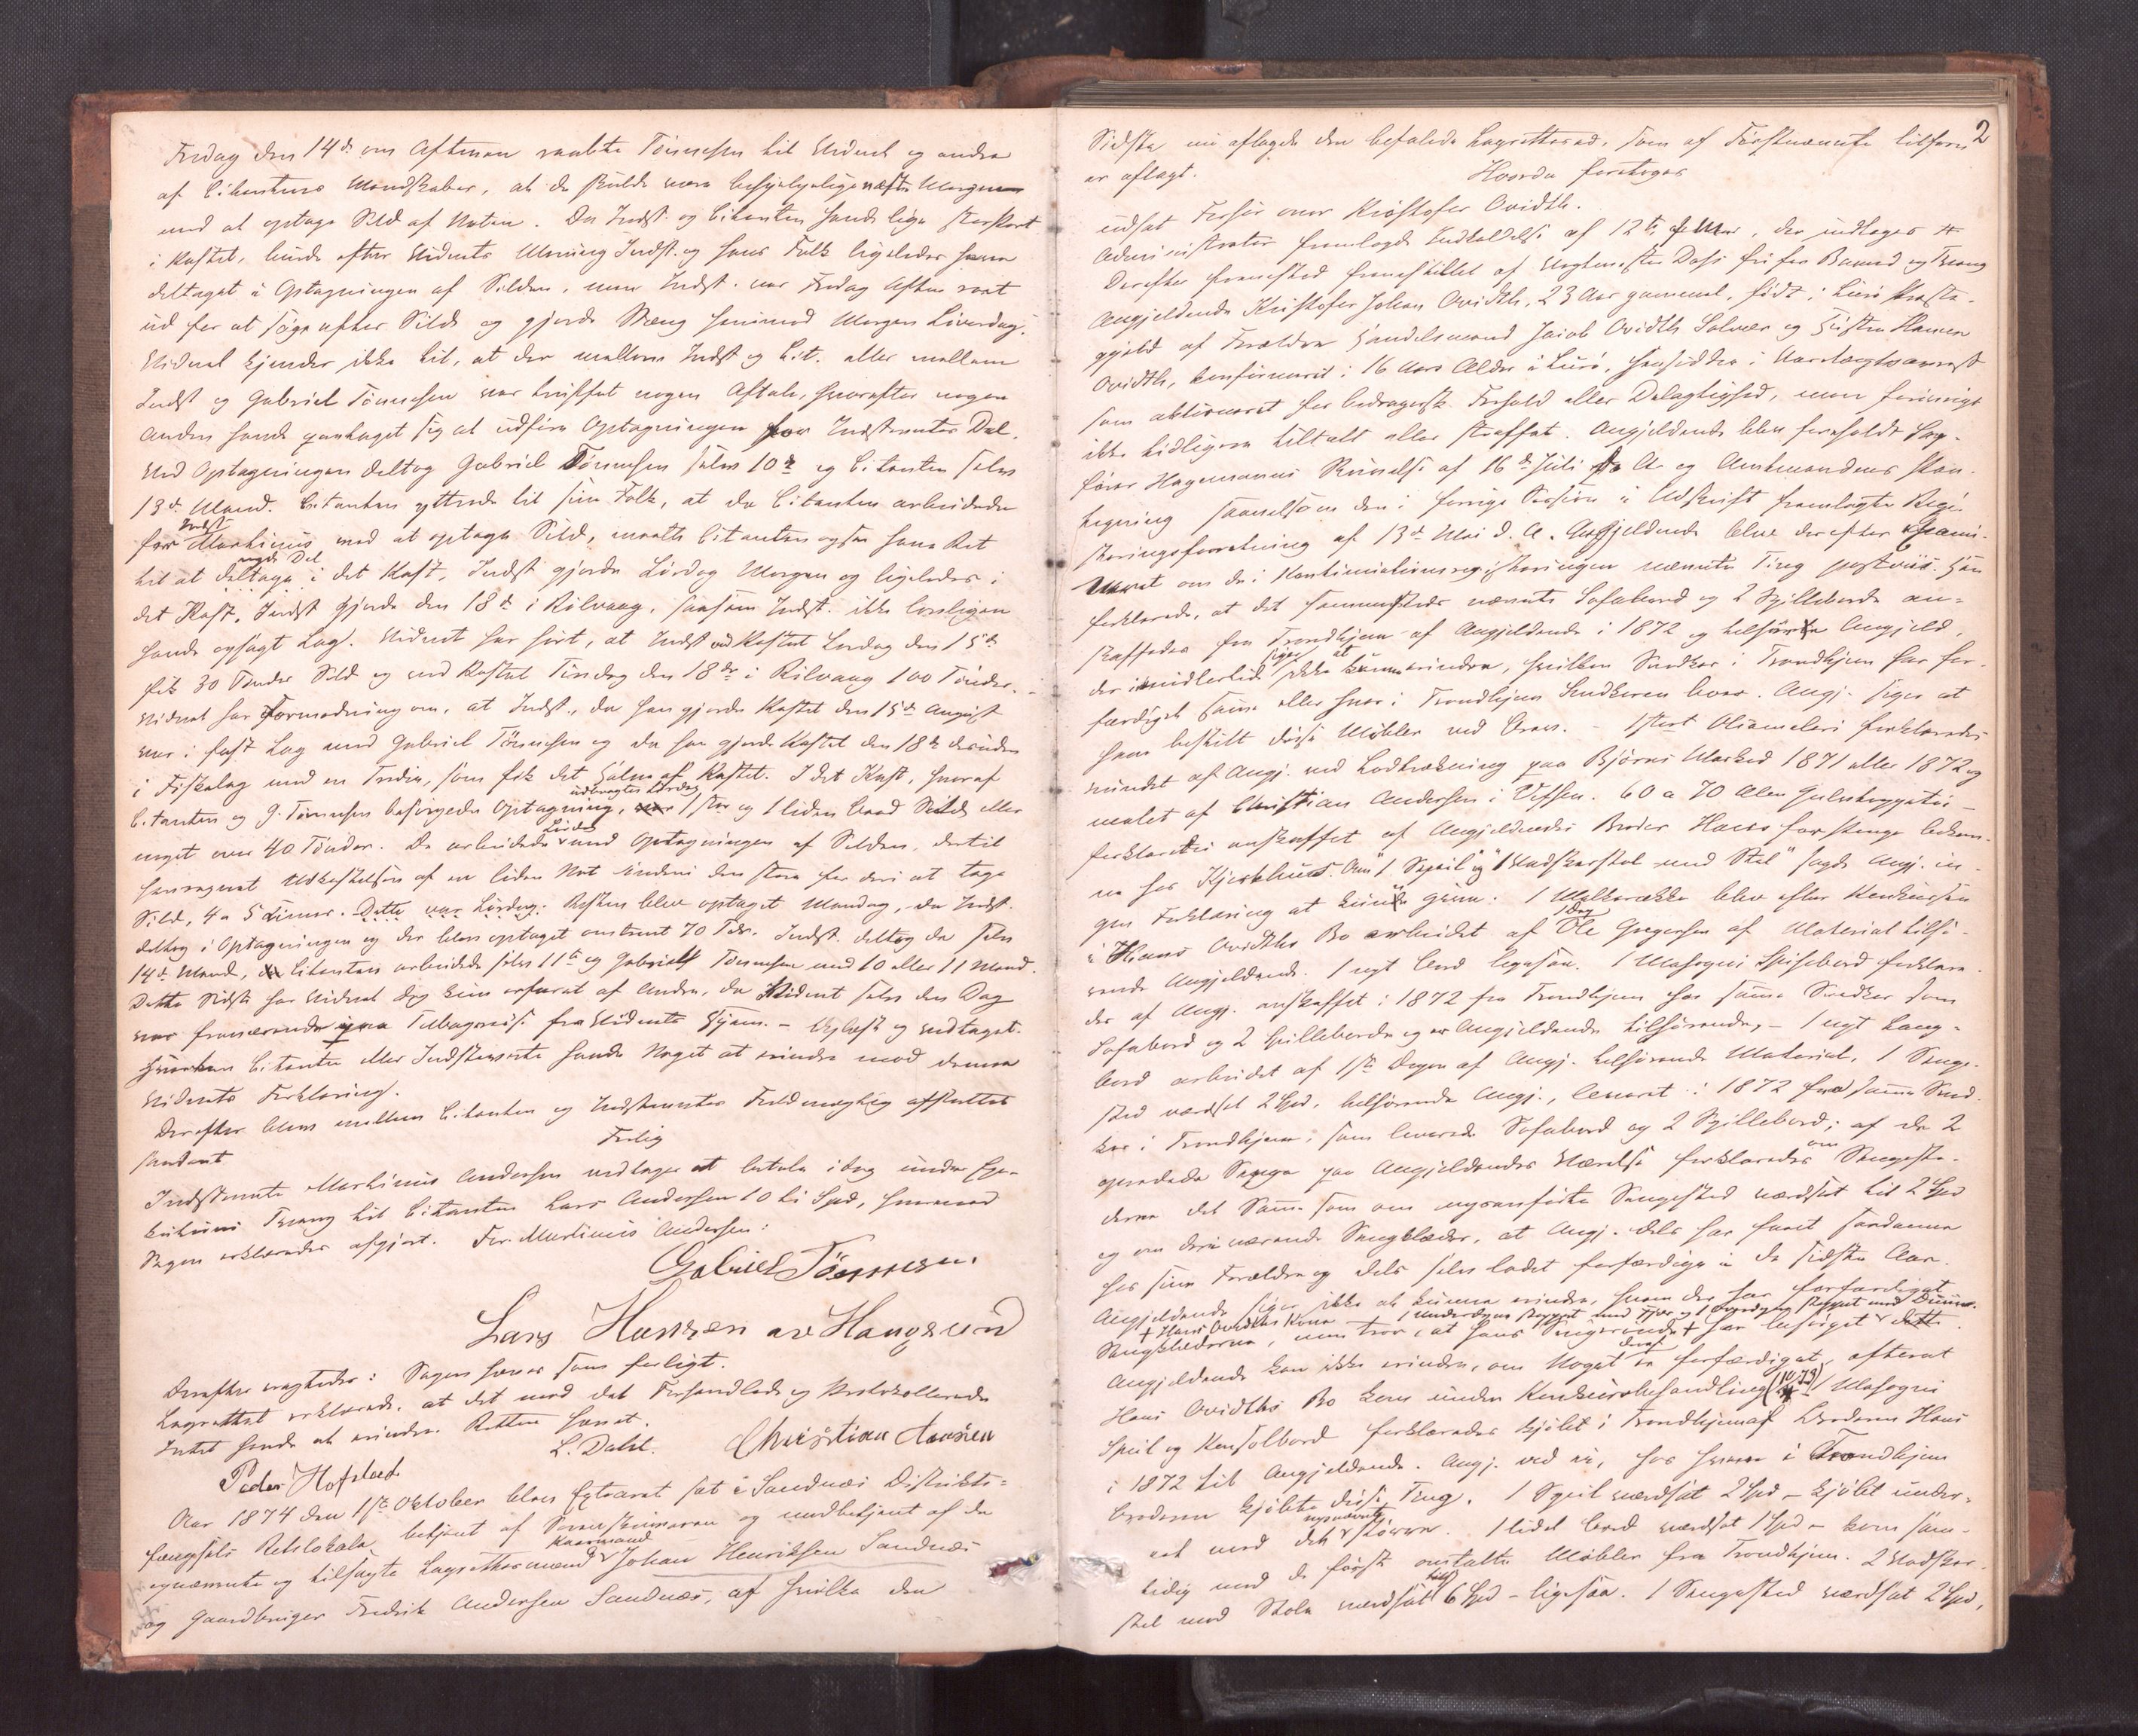 Fredag den 14de om Aftenen raabte Tönnesen til Vidnet og andre
af Citantens Mandskaber, at de skulde være behjelpelige næste Morgen
med at optage Sild af Noten. Da Indst. og Citanten havde lige stor Part
i Kastet, burde efter Vidnets Mening Indst. og hans Folk ligeledes have
deltaget i Optagningen af Silden, men Indst. var Fredag Aften roet
ud for at söge efter Sild og gjorde Stæng henimod Morgen Löverdag.
Vidnet kjender ikke til, at der mellem Indst og Cit. eller mellem
Indst og Gabriel Tönnesen var truffet nogen Aftale, hvorefter nogen
Anden havde paataget sig at udföre Optagningen for Indstevntes Del.
Ved Optagningen deltog Gabriel Tönnesen selv 10de og Citanten selv
13de Mand. Citanten yttrede til sine Folk, at da Citanten arbeidede
for Indst Martinus med at optage Sild, maatte Citanten ogsaa have Ret
til at deltage i nogen Del det Kast, Indst gjorde Lördag Morgen og ligeledes i
det Kast, Indst gjorde den 18de i Rilvaag, saasom Indst. ikke lovligen
havde opsagt Lag. Vidnet har hört, at Indst ved Kastet Lördag den 15de
fik 30 Tönder Sild og ved Kastet Tirsdag den 18de i Rilvaag 100 Tönder.
Vidnet har Formodning om, at Indst., da han gjorde Kastet den 15de August
var i fast Lag med Gabriel Tönnesen og da han gjorde Kastet den 18de desuden
i Fiskelag med en Tredie, som fik det Halve af Kastet. I det Kast, hvoraf
Citanten og G. Tönnesen besörgede Optagning, udbragtes Lördag 1 stor og 1 liden Baad Sild eller
noget over 40 Tönder. De arbeidede Lördag med Optagningen af Silden, dertil
henregnet Udkastelsen af en liden Not indeni den store for deri at tage
Sild, 4 a 5 Timer. Dette var Lördag. Resten blev optaget Mandag, da Indst.
deltog i Optagningen og der blev optaget omtrent 70 Tdr. Indst. deltog da selv
14de Mand, Citanten arbeidede selv 11te og Gabriel Tönnesen med 10 eller 11 Mand.
Dette Sidste har Vidnet dog kun erfaret af Andre, da Vidnet selv den Dag
var fraværende paa Tilbagereise fra Vidnets Hjem. – Oplæst og vedtaget.
Hverken Citanten eller Indstevnte havde Noget at erindre mod denne
Vidnets Forklaring.
Derefter blev mellem Citanten og Indstevntes Fuldmægtig afsluttet
saadant
Forlig
Indstevnte Martinus Andersen vedtager at betale idag under Exe-
kutions Tvang til Citanten Lars Andersen 10 ti Spd, hvormed
Sagen erklæredes afgjort. For Martinus Andersen:
Gabriel Tönnesen.
Lars Hansen av Haugsund
Derefter vragtedes: Sagen hæves som forligt.
Lagrettet erklærede, at det mod det Forhandlede og Protokollerede
Intet havde at erindre. Retten hævet.
L. Dahl. Christian Hansen
Peder Hofstad
Aar 1874 den 1ste Oktober blev Extraret sat i Sandnæs Distrikts-
fængsels Retslokale, betjent af Sorenskriveren og medbetjent af de
opnævnte og tilsagte Lagrettesmænd Kaarmand Johan Henriksen Sandnæs
og Gaardbruger Fredrik Andersen Sandnæs, af hvilke den
2
Sidste nu aflagde den befalede Lagrettesed, som af Förstnævnte tilforn
er aflagt. Hvorda foretoges
udsat Forhör over Kristofer Ovidth.
Administrator fremlagde Indkaldelse af 12te f. M., der indtages
Derefter fremstod fremstillet af Vagtmester Dass fri for Baand og Tvang
Angjeldende Kristofer Johan Ovidth, 23 Aar gammel, födt i Lurö Præste-
gjeld af Forældre Handelsmand Jakob Ovidth Solvær og Hustru Karen
Ovidth, konfirmeret i 16 Aars Alder i Lurö, hensidder i Varetægtsarrest
som aktioneret for bedragersk Forhold eller Delagtighed, men forövrigt
ikke tidligere tiltalt eller straffet. Angjeldende blev foreholdt Sag-
förer Hagemanns Skrivelse af 16de Juli d. A. og Amtmandens Paa-
tegning saavelsom den i forrige Session i Udskrift fremlagte Regi-
streringsforretning af 13de Mai d. A. Angjeldende blev derefter exami-
neret om de i Kontinuationsregistreringen nævnte Ting postviis. Han
forklarede, at det sammesteds nævnte Sofabord og 2 Spilleborde an-
skaffedes fra Trondhjem af Angjeldende i 1872 og tilhörte Angjeld.
der imidlertid siger ikke at kunne erindre, hvilken Snedker i Trondhjem har for-
færdiget samme eller hvor i Trondhjem Snedkeren boer. Angj. siger at
have bestilt disse Möbler ved Brev. – 1 stort Oliemaleri forklaredes
vundet af Angj. ved Lodtrækning paa Björns Marked 1871 eller 1872 og
malet af Christian Andersen i Vefsen. 60 a 70 Alen Gulvteppetöi –
forklaredes anskaffet af Angjeldendes Broder Hans for Penge bekom-
ne hos Kjerkhus. Om 1 Speil og "1 Vadskerstel med Stel" sagde Angj. in-
gen Forklaring at kunde give. 1 Melkerække blev efter Konkursen
i Hans Ovidths Bo arbeidet af Ole Gregersen af Material tilhö-
rende Angjeldende. 1 nyt Bord ligesaa. 1 Mahogni Spisebord forklare-
des af Angj. anskaffet i 1872 fra Trondhjem hos samme Snedker som
Sofabord og 2 Spilleborde og er Angjeldende tilhörende, – 1 nyt Lang-
bord arbeidet af 1ste Dreyer af Angj. tilhörende Material. 1 Senge-
sted værdsat 2 Spd, tilhörende Angj., leveret i 1872 fra samme Sned-
ker i Trondhjem, som leverede Sofabord og 2 Spillebord; af de 2
opredede Senge paa Angjeldendes Værelse forklaredes om Sengeste-
derne det Samme som om nysanförte Sengested værdsat til 2 Spd
og om deri værende Sengklæder, at Angj. dels har faaet saadanne
hos sine Forældre og dels selv ladet forfærdige i de sidste Aar.
Angjeldende siger ikke at kunne erindre, hvem der har forfærdiget
+ Hans Ovidths Kone 1 Underdyne stoppet med Fjær og 1 Overdyne stoppet med Duun.
Sengklæderne, men tror, at hans Svigerinde + har besörget dette.
Angjeldende kan ikke erindre, om Noget deraf er forfærdiget, efterat
Hans Ovidths Bo kom under Konkursbehandling 1 Mahogni
Speil og Konsolbord forklaredes kjöbt i Trondhjem af Broderen Hans
i 1872 til Angjeldende. Angj. ved ei, hos hvem i Trondhjem
Broderen kjöbte disse Ting. 1 Speil værdsat 2 Spd – kjöbt under-
eet med det nysnævnte större. 1 lidet Bord værdsat 1 Spd – kom sam-
tidig med de först omtalte Möbler fra Trondhjem. 2 Vadsker-
stel med Stole værdsat til 6 Spd – ligesaa. 1 Sengested værdsat 2 Spd,